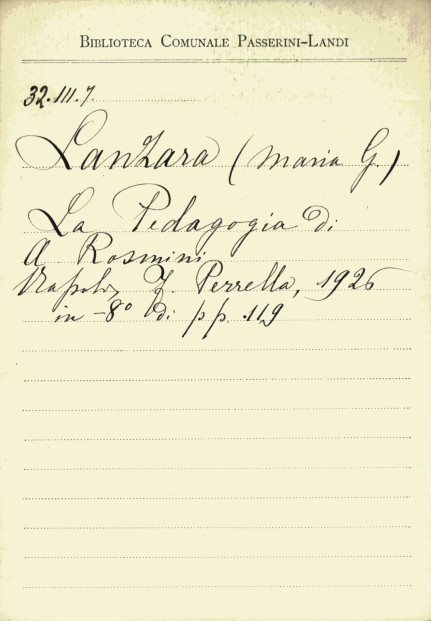 BIBLIOTECA COMUNALE PASSERINI-LANDI
32.III.7.
Lanzara (Maria G.)
La Pedagogia di
A. Rosmini
Napoli, F. Perrella, 1926
in-8° di pp. 119